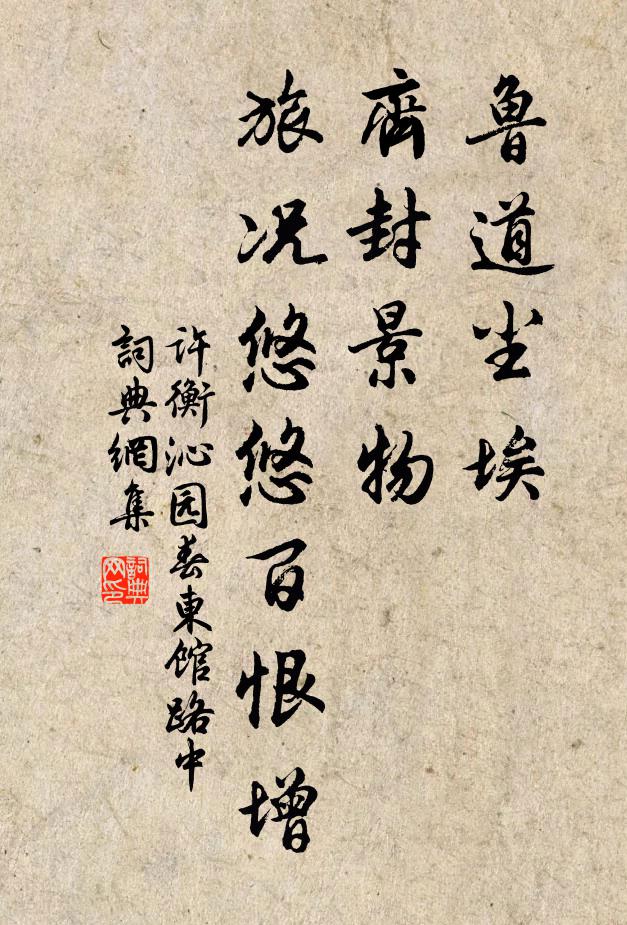 魯道尘埃
齊封景物
旅况悠悠百恨增
许衡沁园春東馆路中
詞典網集
詞典网印